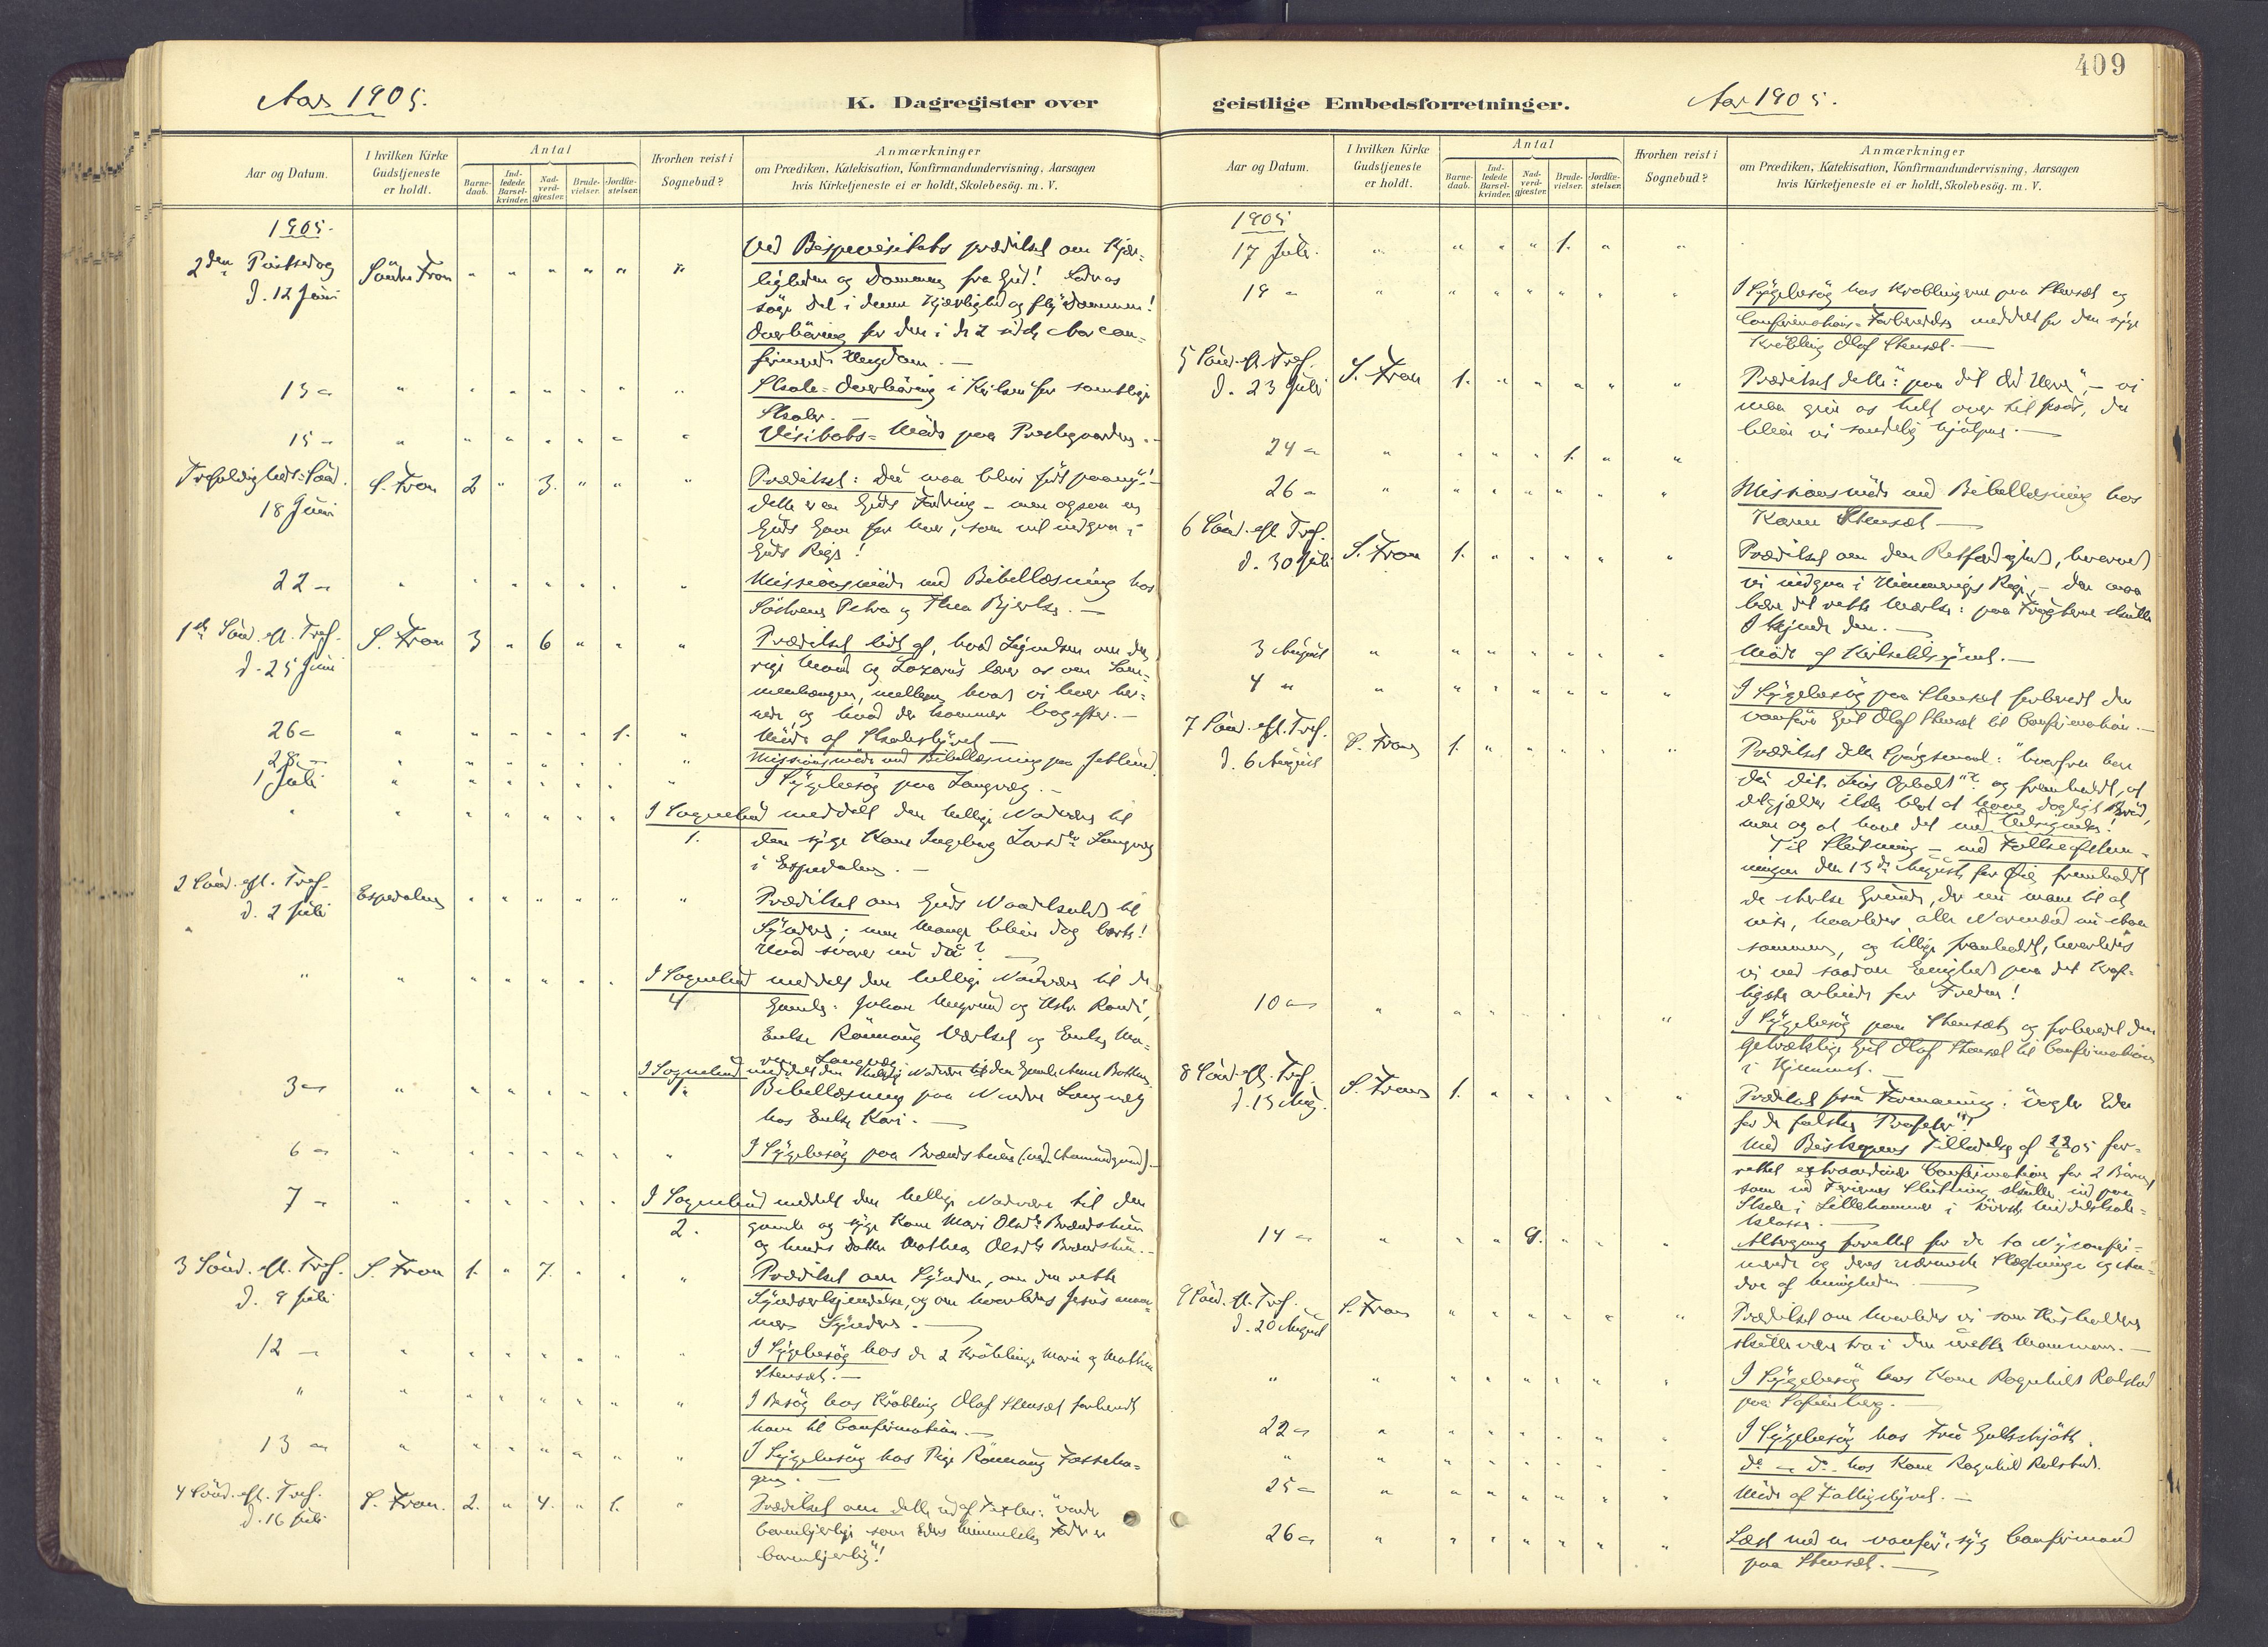 409
Aar 1905.
K. Dagregister over
geistlige Embedsforretninger.
Aar 1905.
Aar og Datum.
I hvilken Kirke Gudstjeneste er holdt.
Antal
Barnedaab.
Indledede Barselkvinder.
Nadverdgjæster.
Brudevielser.
Jordfæstelser.
Hvorhen reist i Sognebud?
Anmærkninger
om Prædiken, Katekisation, Konfirmandundervisning, Aarsagen
hvis Kirketjeneste ei er holdt, Skolebesög. m. V.
1905.
2den Pintsedag Söndre Fron
d. 12 Juni
Ved Bispevisitats prædiket om Kjær-
ligheden og Dommen fra Gud! Lad os
søge det i denne Kjærlighed og fly Dommen!
Overhöring for den i de 2 sidste Aar con-
firmerede Ungdom. —
13 " Skole-Overhöring i Kirken for samtlige
Skoler. —
15 " Visitats-Möde paa Prestegaarden. —
Trefoldigheds-Sönd. S. Fron 2 " 3. " " "
18 Juni
Prædiket: Du maa blive født paany! —
dette er en Guds Fordring — men ogsaa en
Guds Gave for hver, som vil indgaa i
Guds Rige!
22 " Missionsmöde med Bibellæsning hos
Söstrene Petra og Thea Bjerke. —
1ste Sönd. eft. Tref. S. Fron 3 " 6 " " "
d. 25 Juni
Prædiket lidt af, hvad Lignelsen om den
rige Mand og Lazarus lærer os om Sam-
menhængen, mellem hvad vi lever her-
nede, og hvad der kommer bagefter. —
26 " 1. Möde af Skolestyret —
28 " Missionsmöde med Bibellæsning paa
1 Juli I Sygebesög paa Langvæg. —
I Sognebud meddelt den hellige Nadvere til
1. den syge Kone Ingeborg Larsdtr Langvæg
i Espedalen. —
2 Sönd. eft. Tref. Espedalen
d. 2 Juli
Prædiket om Guds Naadeskald til
Syndere; men Mange bleve dog borte!
Hvad svarer nu du? —
I Sognebud meddelt den hellige Nadvere til de
4 Gamle: Johan og Hstr. Randi,
Enke Rönnaug og Enke Ma-
ren Langvæg
3 " I Sognebud meddelt den hellige Nadvere til den Gamle Anne
1. Bibellæsning paa Nordre Langvæg
hos Enke Kari. —
6 " I Sygebesög paa
7 " I Sognebud meddelt den hellige Nadvere til den
2. gamle og syge Kone Mari Olsdtr
og hendes Datter Mathea Olsdtr
3 Sönd. eft. Tref. S. Fron 1. " 7. " " "
d. 9 Juli
Prædiket om Synden, om den rette
Syndserkjendelse, og om hvorledes Jesus anam-
mer Syndere. —
12 " I Sygebesög hos de 2 Kröblinge Marie og Mathea
Stensæt. —
I Besög hos Kröbling Olaf Stensæt forberedt
ham til Confirmation. —
13 " I Sygebesög hos Pige Rönnaug
4 Sönd. eft. Tref. S. Fron. 2. " 4. " 1. "
d. 16 Juli
Prædiket om dette ud af Texten: "værer
barmhjertige som Eders himmelske Fader er
barmhjertig"!
Aar og Datum.
I hvilken Kirke Gudstjeneste er holdt.
Antal
Barnedaab.
Indledede Barselkvinder.
Nadverdgjæster.
Brudevielser.
Jordfæstelser.
Hvorhen reist i Sognebud?
Anmærkninger
om Prædiken, Katekisation, Konfirmandundervisning, Aarsagen
hvis Kirketjeneste ei er holdt, Skolebesög. m. V.
1905
17 Juli. " " " " 1. " "
19 " I Sygebesög hos Kröblingerne paa Stensæt og
Confirmations-Forberedelse meddelt for den syge
Kröbling Olaf Stensæt. —
5 Sönd. eft. Tref. S. Fron 1. " " " " "
d. 23 Juli
Prædiket dette: "paa dit Ord Herre", — vi
maa give os helt over til hvad, da
bleve vi sandelig hjulpne. —
24 " 1.
26 " Missionsmöde med Bibellæsning hos
Karen Stensæt —
6 Sönd. eft. Tref. S. Fron 1. " " " " "
d. 30 Juli
Prædiket om den Retfærdighed, hvorved
vi indgaa i Himmeriges Rige, — den maa
bære det rette Mærke: paa Frugterne skulle
I kjende den. —
3 August Möde af Kirketilsynet. —
4 " I Sygebesög paa Stensæt forberedt den
vanføre Gut Olaf Stensæt til Confirmation. —
7 Sönd. eft. Tref. S. Fron 1. " " " " "
d. 6 August
Prædiket dette Spörgsmaal: "hvorfra har
du dit Livs Ophold"? og fremholdt, at
det gjælder ikke blot at have dagligt Bröd,
men og at have det med Velsignelse!
Til Slutning — med Folkeafstem-
ningen den 13de August for Öie fremholdt
de stærke Grunde, der nu mane til at
vise, hvorledes alle Nordmænd nu staa
sammen, og tillige fremholdt, hvorledes
vi ved saadan Enighed paa det kraf-
tigste arbeide for Freden!
10 " I Sygebesög paa Stensæt og forberedt den
Gut Olaf Stensæt til Confirmation
i Hjemmet. —
8 Sönd. eft. Tref. S. Fron 1. " " " " "
d. 13 Aug.
Prædiket Formaning: "vogter Eder
for de falske Profeter"!
Med Biskopens Tilladelse af for-
rettet extraordinær Confirmation for 2 Börn,
som ved Feriernes Slutning skulle ind paa
Skole i Lillehammer i Middelskole-
klasse. —
14 " 9. Altergang forrettet for de to Nyconfir-
merede og deres nærmeste Slægtninge og An-
dre af Menigheden. —
9 Sönd. eft. Tref. S. Fron
d. 20 August
Prædiket om hvorledes vi som Husholdere
skulle være tro i den urette Mammon. —
I Sygebesög hos Kone Ragnhild Rolstad
paa Sofienberg. —
22 " I Sygebesög hos Fru
do — do — hos Kone Ragnhild Rolstad.
25 " Möde af Fattigstyret. —
26 " Læst med en vanför, syg Confirmand
paa Stensæt. —